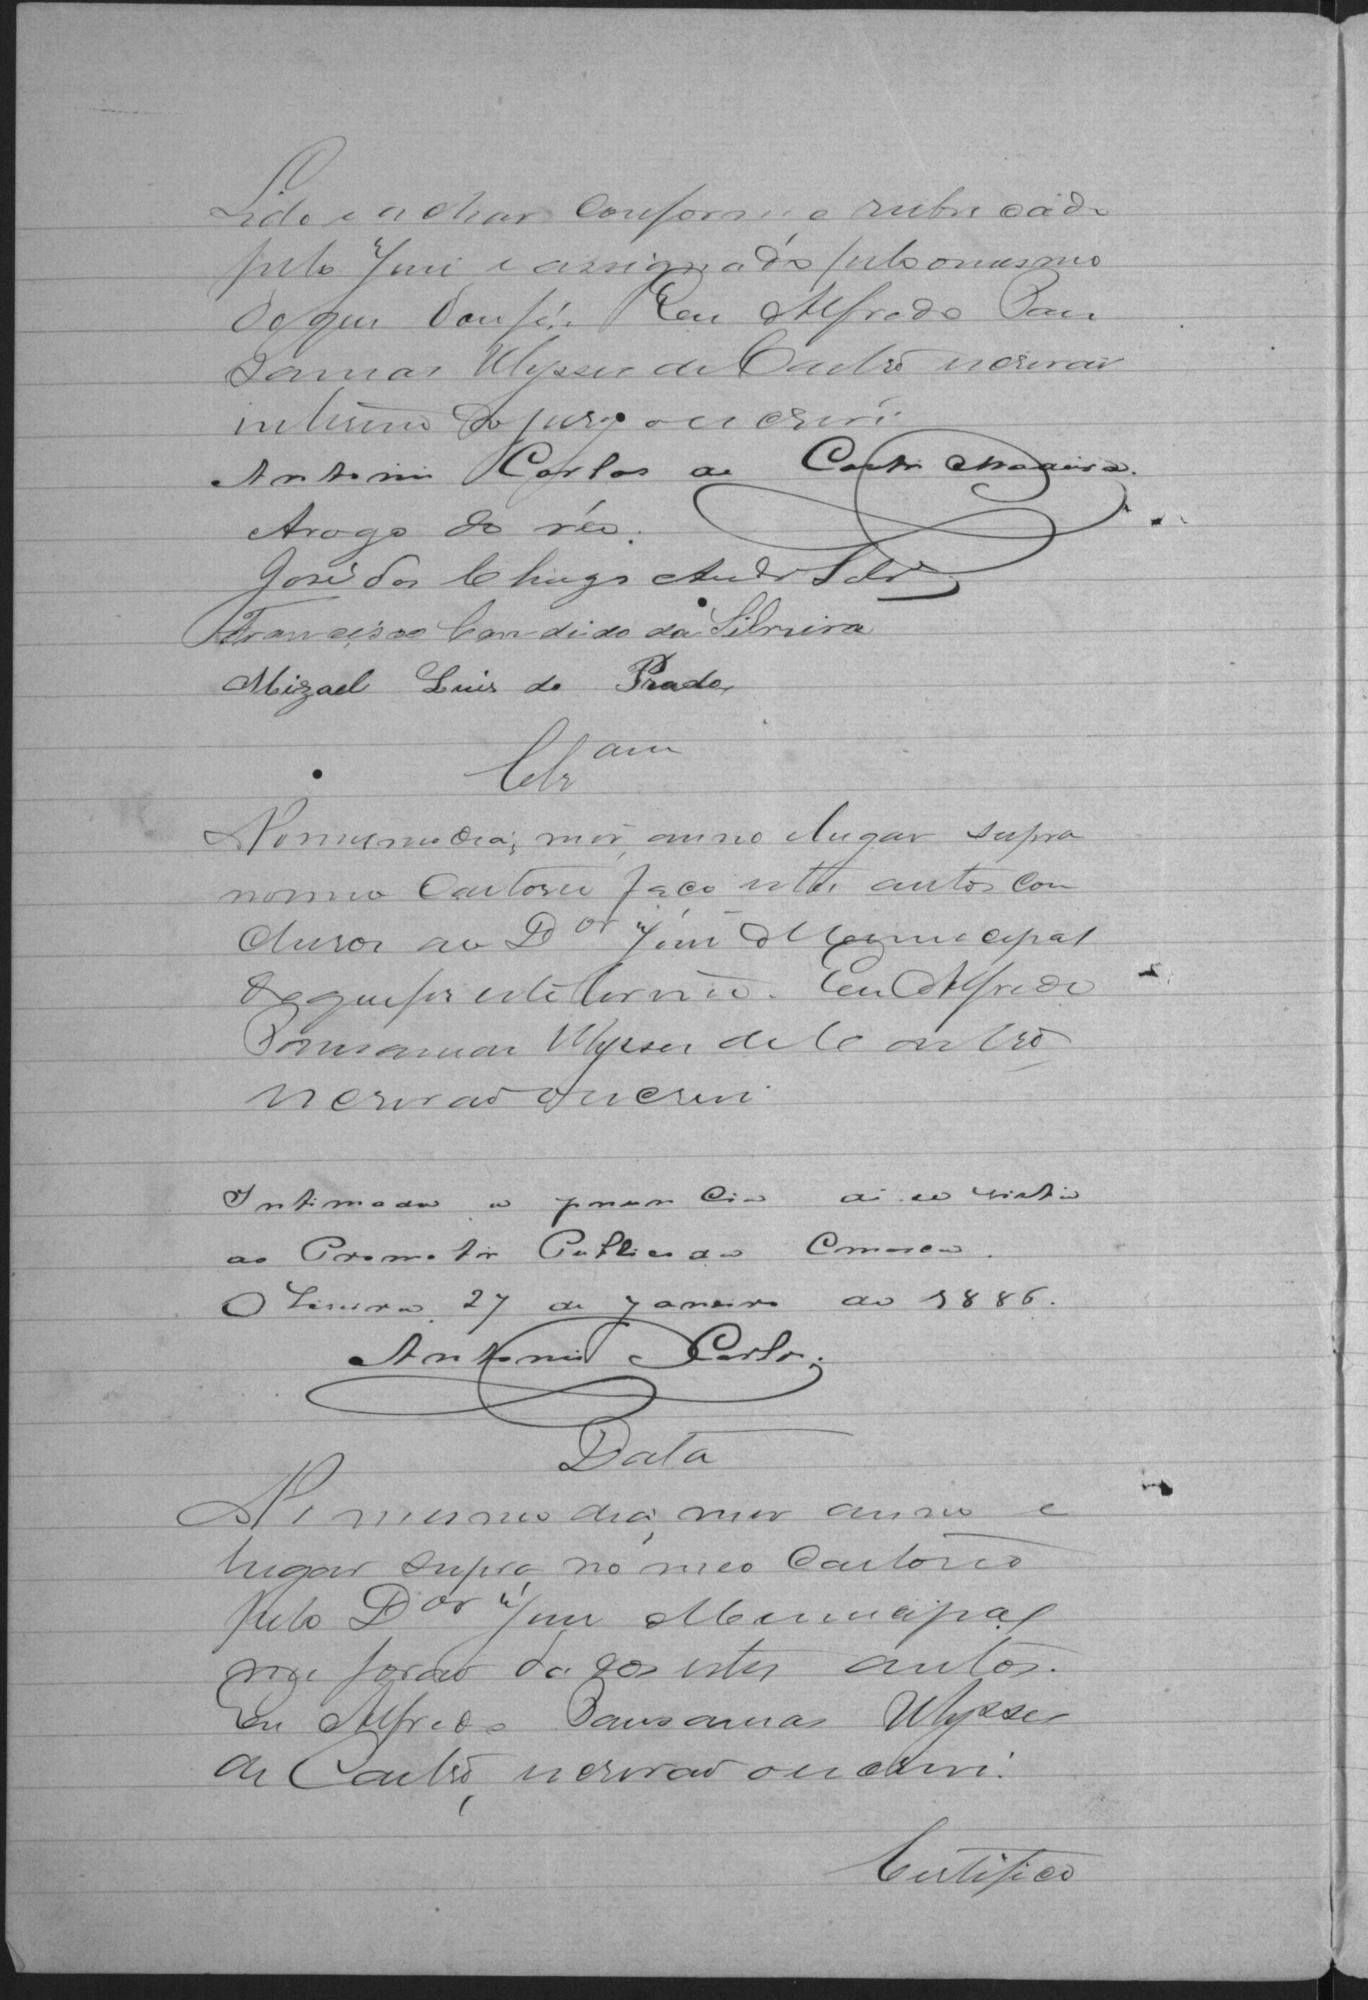 Lido e achar conforme e rubricado
pelo Juiz e assignado pelo mesmo
do que dou fé. Eu Alfredo Pau
sanias Ulysses de Castro escrivão
interino do jury o escrevi.
Antonio Carlos de Castro Madeira.
Arogo do réo.
José das Chagas Andr Silv
Francisco Candido da Silveira
Mizael Luis do Prado
Clzam
No mesmo dia, mes, anno e lugar supra
no meu Cartorio faço estes autos con
clusos ao Dor Juiz Municipal
do que fis este termo. Eu Alfredo
Pausanias Ulysses de Castro
escrivão o escrevi
Intimada a pronuncia dê-se vista
ao Promotor Publico da Comarca.
Oliveira 27 de Janeiro de 1886.
Antonio Carlos.
Data
No mesmo dia, mes anno e
lugar supra no meo Cartorio
pelo Dor Juiz Municipal
me forão dados estes autos.
Eu Alfredo Pausanias Ulysses
de Castro, escrivão o escrevi.
Certifico